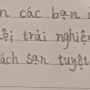 n các bạn
ội trải nghiệ
ách sạn tuyệt